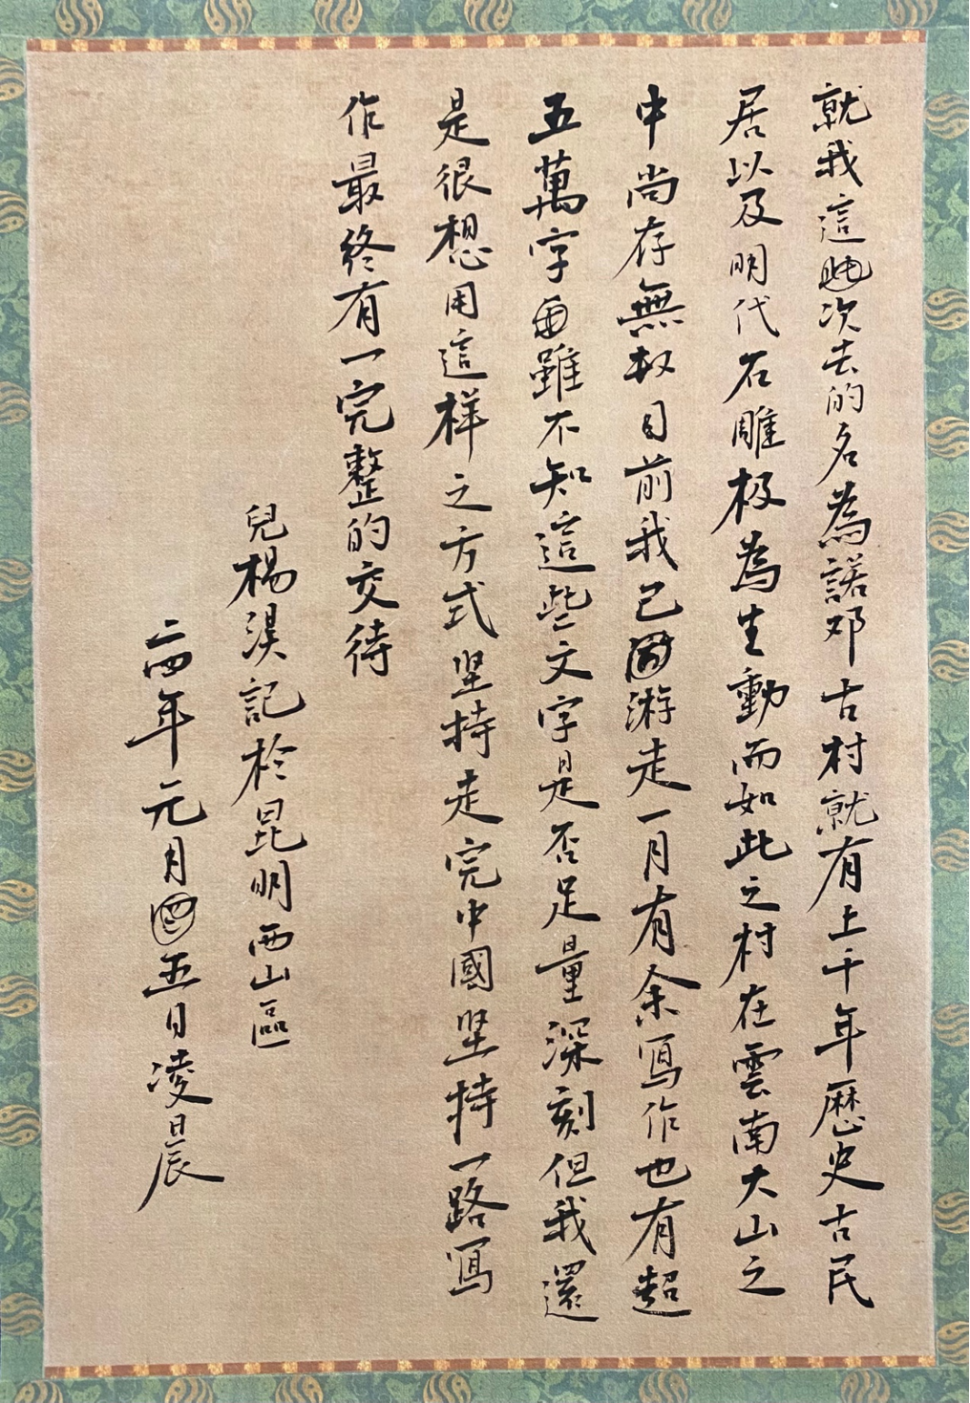 就我這次去的名為諾邓古村就有上千年歷史古民
居以及明代石雕极為生動而如此之村在雲南大山之
中尚存無数目前我已游走一月有余写作也有超
五萬字雖不知這些文字是否足量深刻但我還
是很想用這样之方式坚持走完中國坚持一路写
作最終有一完整的交待
兒楊淏記於昆明西山區
二四年元月五日凌晨